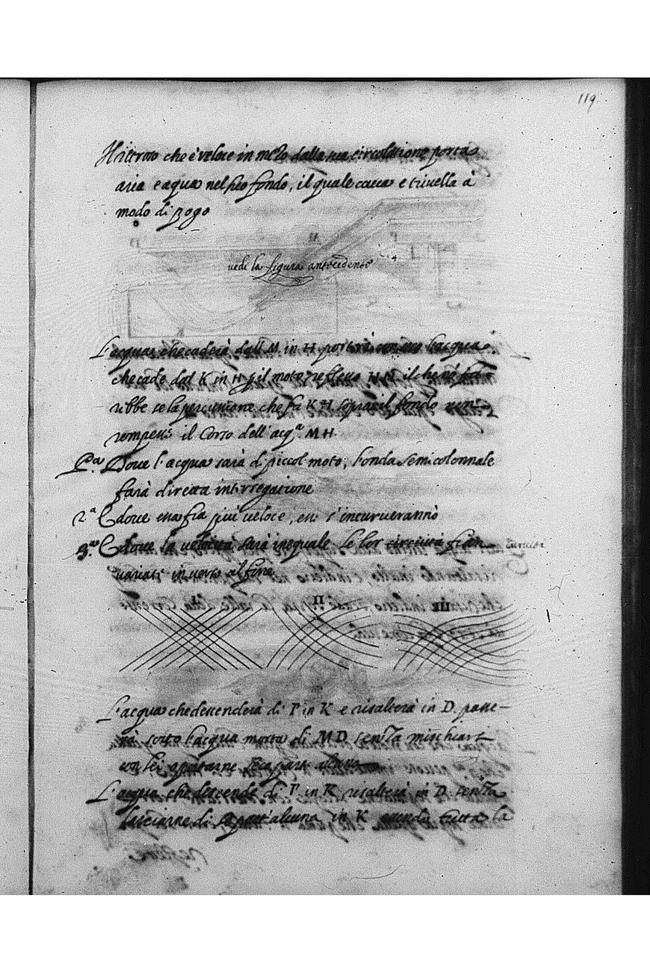 119.
Il retroso che è veloce in mezo dalla sua circulatione porta
aria e aqua nel suo fondo, il quale cava e trivella à
modo di pozo
vedi la figura antecedente
L'acqua che caderà dall M in H porterà l'acqua
che cade dal K in H p il moto reflesso H N il che
rebbe se la percusione che fa K H sopra il fondo non
rompess il Corso dell'acq.ª M H
P.ª Doue l'acqua sarà di piccol moto, l'onda semicolonnale
farà diretta intersegatione
2.ª E doue ella fia piu ueloce, en: s'incurueranno
3.ª E doue la uelocità sarà inequale le lor curuità fien
uariate inuerso al fine
I II III
L'acqua che descenderà di P in K e risalterà in D passe-
rà sotto l'acqua morta di M D senza mischiarsi
con lei o portarne seco parte alcuna
L'acqua che descende di P in K risalterà in D senza
lasciarne di se part'alcuna in K essendo tutta la